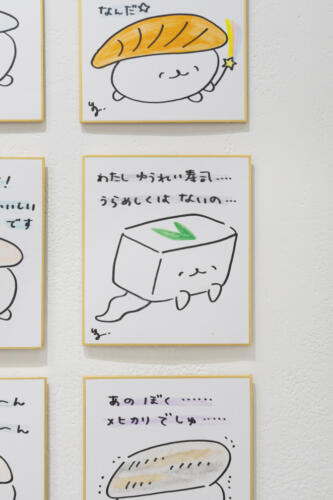 なんだ☆
！
いしい
です
わたし ゆうれい寿司....
うらめしくは ないの...
〜ん
〜ん
あの ぼく ......
メヒカリ でしゅ .....